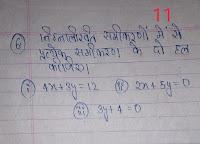 11
6 निम्नलिखित समीकरणों में से
प्रत्येक समीकरण के दो हल
कीजिए।
i 4x+3y=12 ii 2x+5y=0
iii 3y+4=0